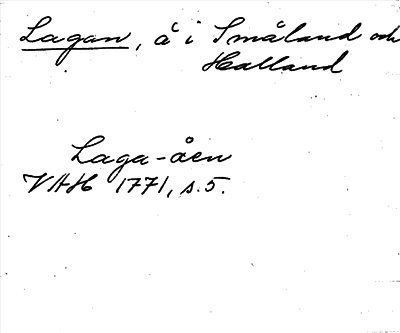 Lagan, å i Småland och
Halland
Laga-åen
VAH 1771, s.5.